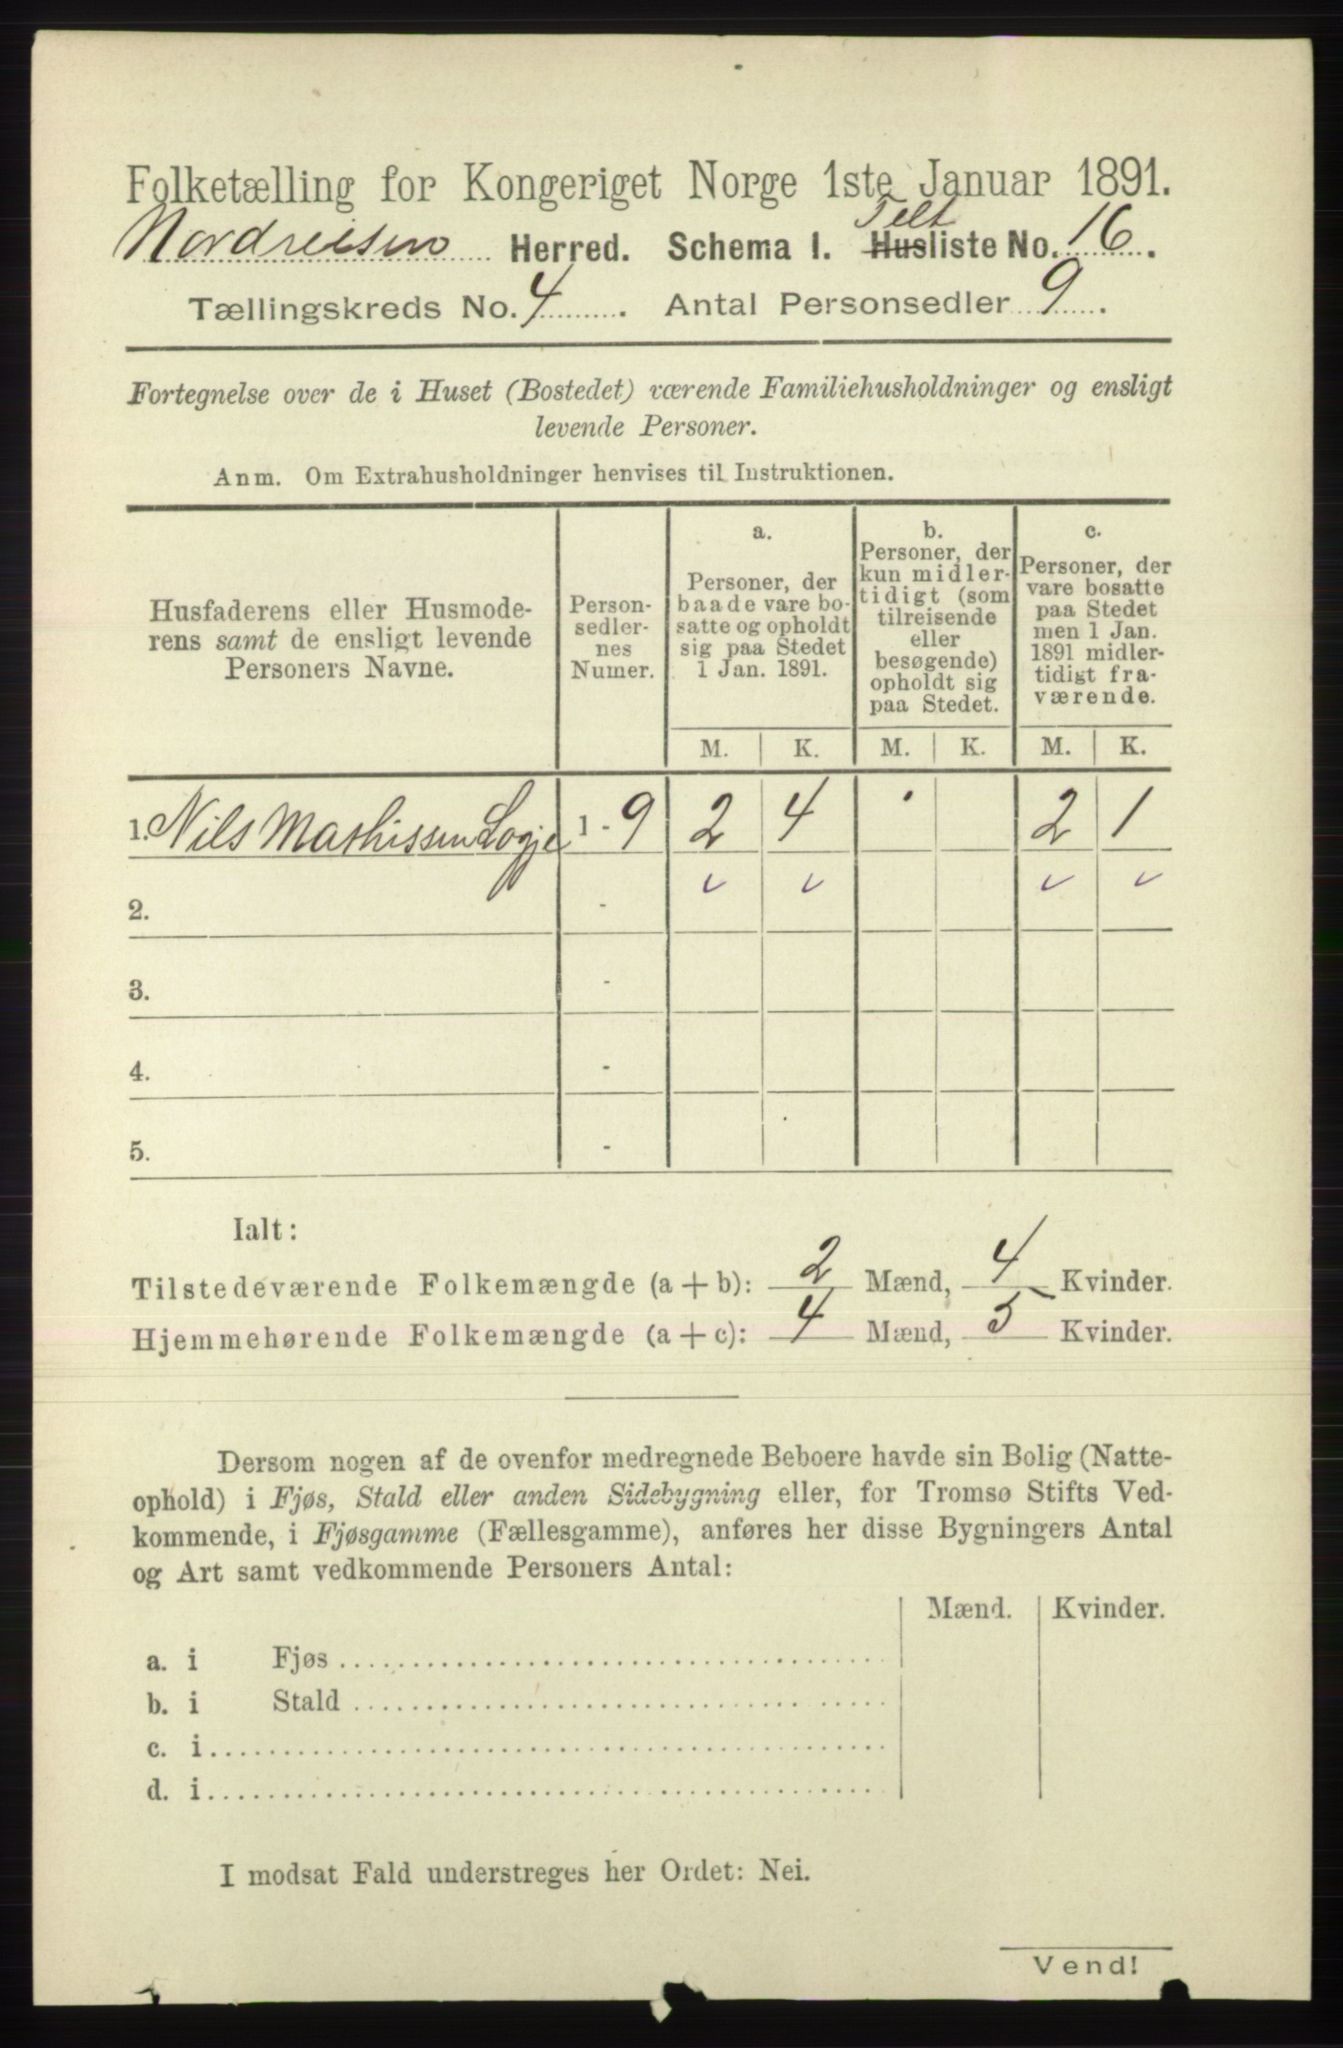 Folketælling for Kongeriget Norge 1ste Januar 1891.
Nordreisen Herred. Schema I. Telt Husliste No. 16.
Tællingskreds No. 4. Antal Personsedler 9.
Fortegnelse over de i Huset (Bostedet) værende Familiehusholdninger og ensligt
levende Personer.
Anm. Om Extrahusholdninger henvises til Instruktionen.
Husfaderens eller Husmode-
rens samt de ensligt levende
Personers Navne.
Person-
sedler-
nes
Numer.
a.
Personer, der
baade vare bo-
satte og opholdt
sig paa Stedet
1 Jan. 1891.
b.
Personer, der
kun midler-
tidigt (som
tilreisende
eller
besøgende)
opholdt sig
paa Stedet.
c.
Personer, der
vare bosatte
paa Stedet
men 1 Jan.
1891 midler-
tidigt fra-
værende.
M. K. M. K. M. K.
1. Nils Mathissen Logje 1 - 9 2 4 2 1
2. -
3. -
4. -
5. -
Ialt:
Tilstedeværende Folkemængde (a + b): 2 Mænd, 4 Kvinder.
Hjemmehørende Folkemængde (a + c): 4 Mænd, 5 Kvinder.
Dersom nogen af de ovenfor medregnede Beboere havde sin Bolig (Natte-
ophold) i Fjøs, Stald eller anden Sidebygning eller, for Tromsø Stifts Ved-
kommende, i Fjøsgamme (Fællesgamme), anføres her disse Bygningers Antal
og Art samt vedkommende Personers Antal:
Mænd. Kvinder.
a. i Fjøs
b. i Stald
c. i
d. i
I modsat Fald understreges her Ordet: Nei.
Vend!